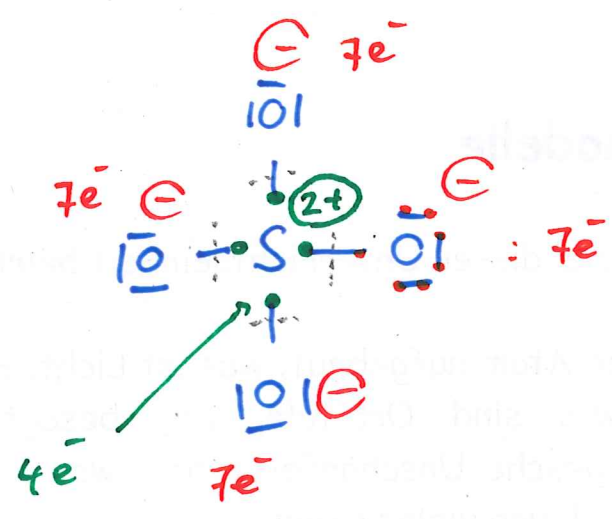 ⊖ 7e⁻
|O|
7e⁻ ⊖ 2+ ⊖
|O – S – O| : 7e⁻
|O| ⊖
4e⁻ 7e⁻